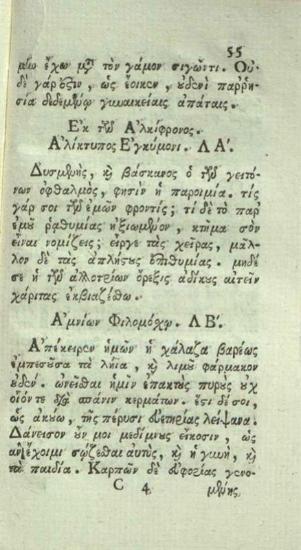 55
μὴν ἔχω μετὰ τὸν γάμον σιγῶντι. Οὐ-
δὲ γάρ ἐστιν, ὡς ἔοικεν, οὐδενὶ παῤῥη-
σία δεδεμένῳ γυναικείαις ἀπάταις.
Ἐκ τοῦ Ἀλκίφρονος.
Ἀλίκτυπος Ἐγκύμονι. ΛΑ΄.
Δυσμενὴς, καὶ βάσκανος ὁ τῶν γειτό-
νων ὀφθαλμὸς, φησὶν ἡ παροιμία. τίς
γάρ σοι τῶν ἐμῶν φροντίς; τί δὲ τὸ παρ'
ἐμοῦ ῥαθυμίας ἠξιωμένον, κτῆμα σὸν
εἶναι νομίζεις; εἶργε τὰς χεῖρας, μᾶλ-
λον δὲ τὰς ἀπλήστους ἐπιθυμίας. μηδέ
σε ἡ τῶν ἀλλοτρίων ὄρεξις ἀδίκους αἰτεῖν
χάριτας ἐκβιαζέσθω.
Ἀμνίων Φιλομόσχῳ. ΛΒ΄.
Ἀπέκειρεν ἡμῶν ἡ χάλαζα βαρέως
ἐμπεσοῦσα τὰ λήϊα, καὶ λιμοῦ φάρμακον
οὐδέν. ὠνεῖσθαι ἡμῖν ἐπακτοὺς πυροὺς οὐχ
οἷόντε διὰ σπάνιν κερμάτων. ἔστι δέ σοι,
ὡς ἀκούω, τῆς πέρυσι εὐετηρίας λείψανα.
Δάνεισον οὖν μοι μεδίμνους εἴκοσιν, ὡς
ἂν ἔχοιμι σώζεσθαι αὐτὸς, καὶ ἡ γυνὴ, καὶ
τὰ παιδία. Καρπῶν δὲ εὐφορίας γενο-
C 4 μένης